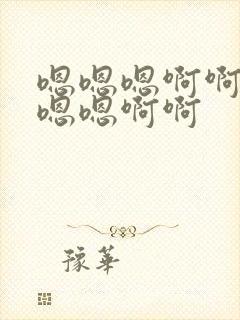 嗯嗯嗯啊啊
嗯嗯啊啊
豫華